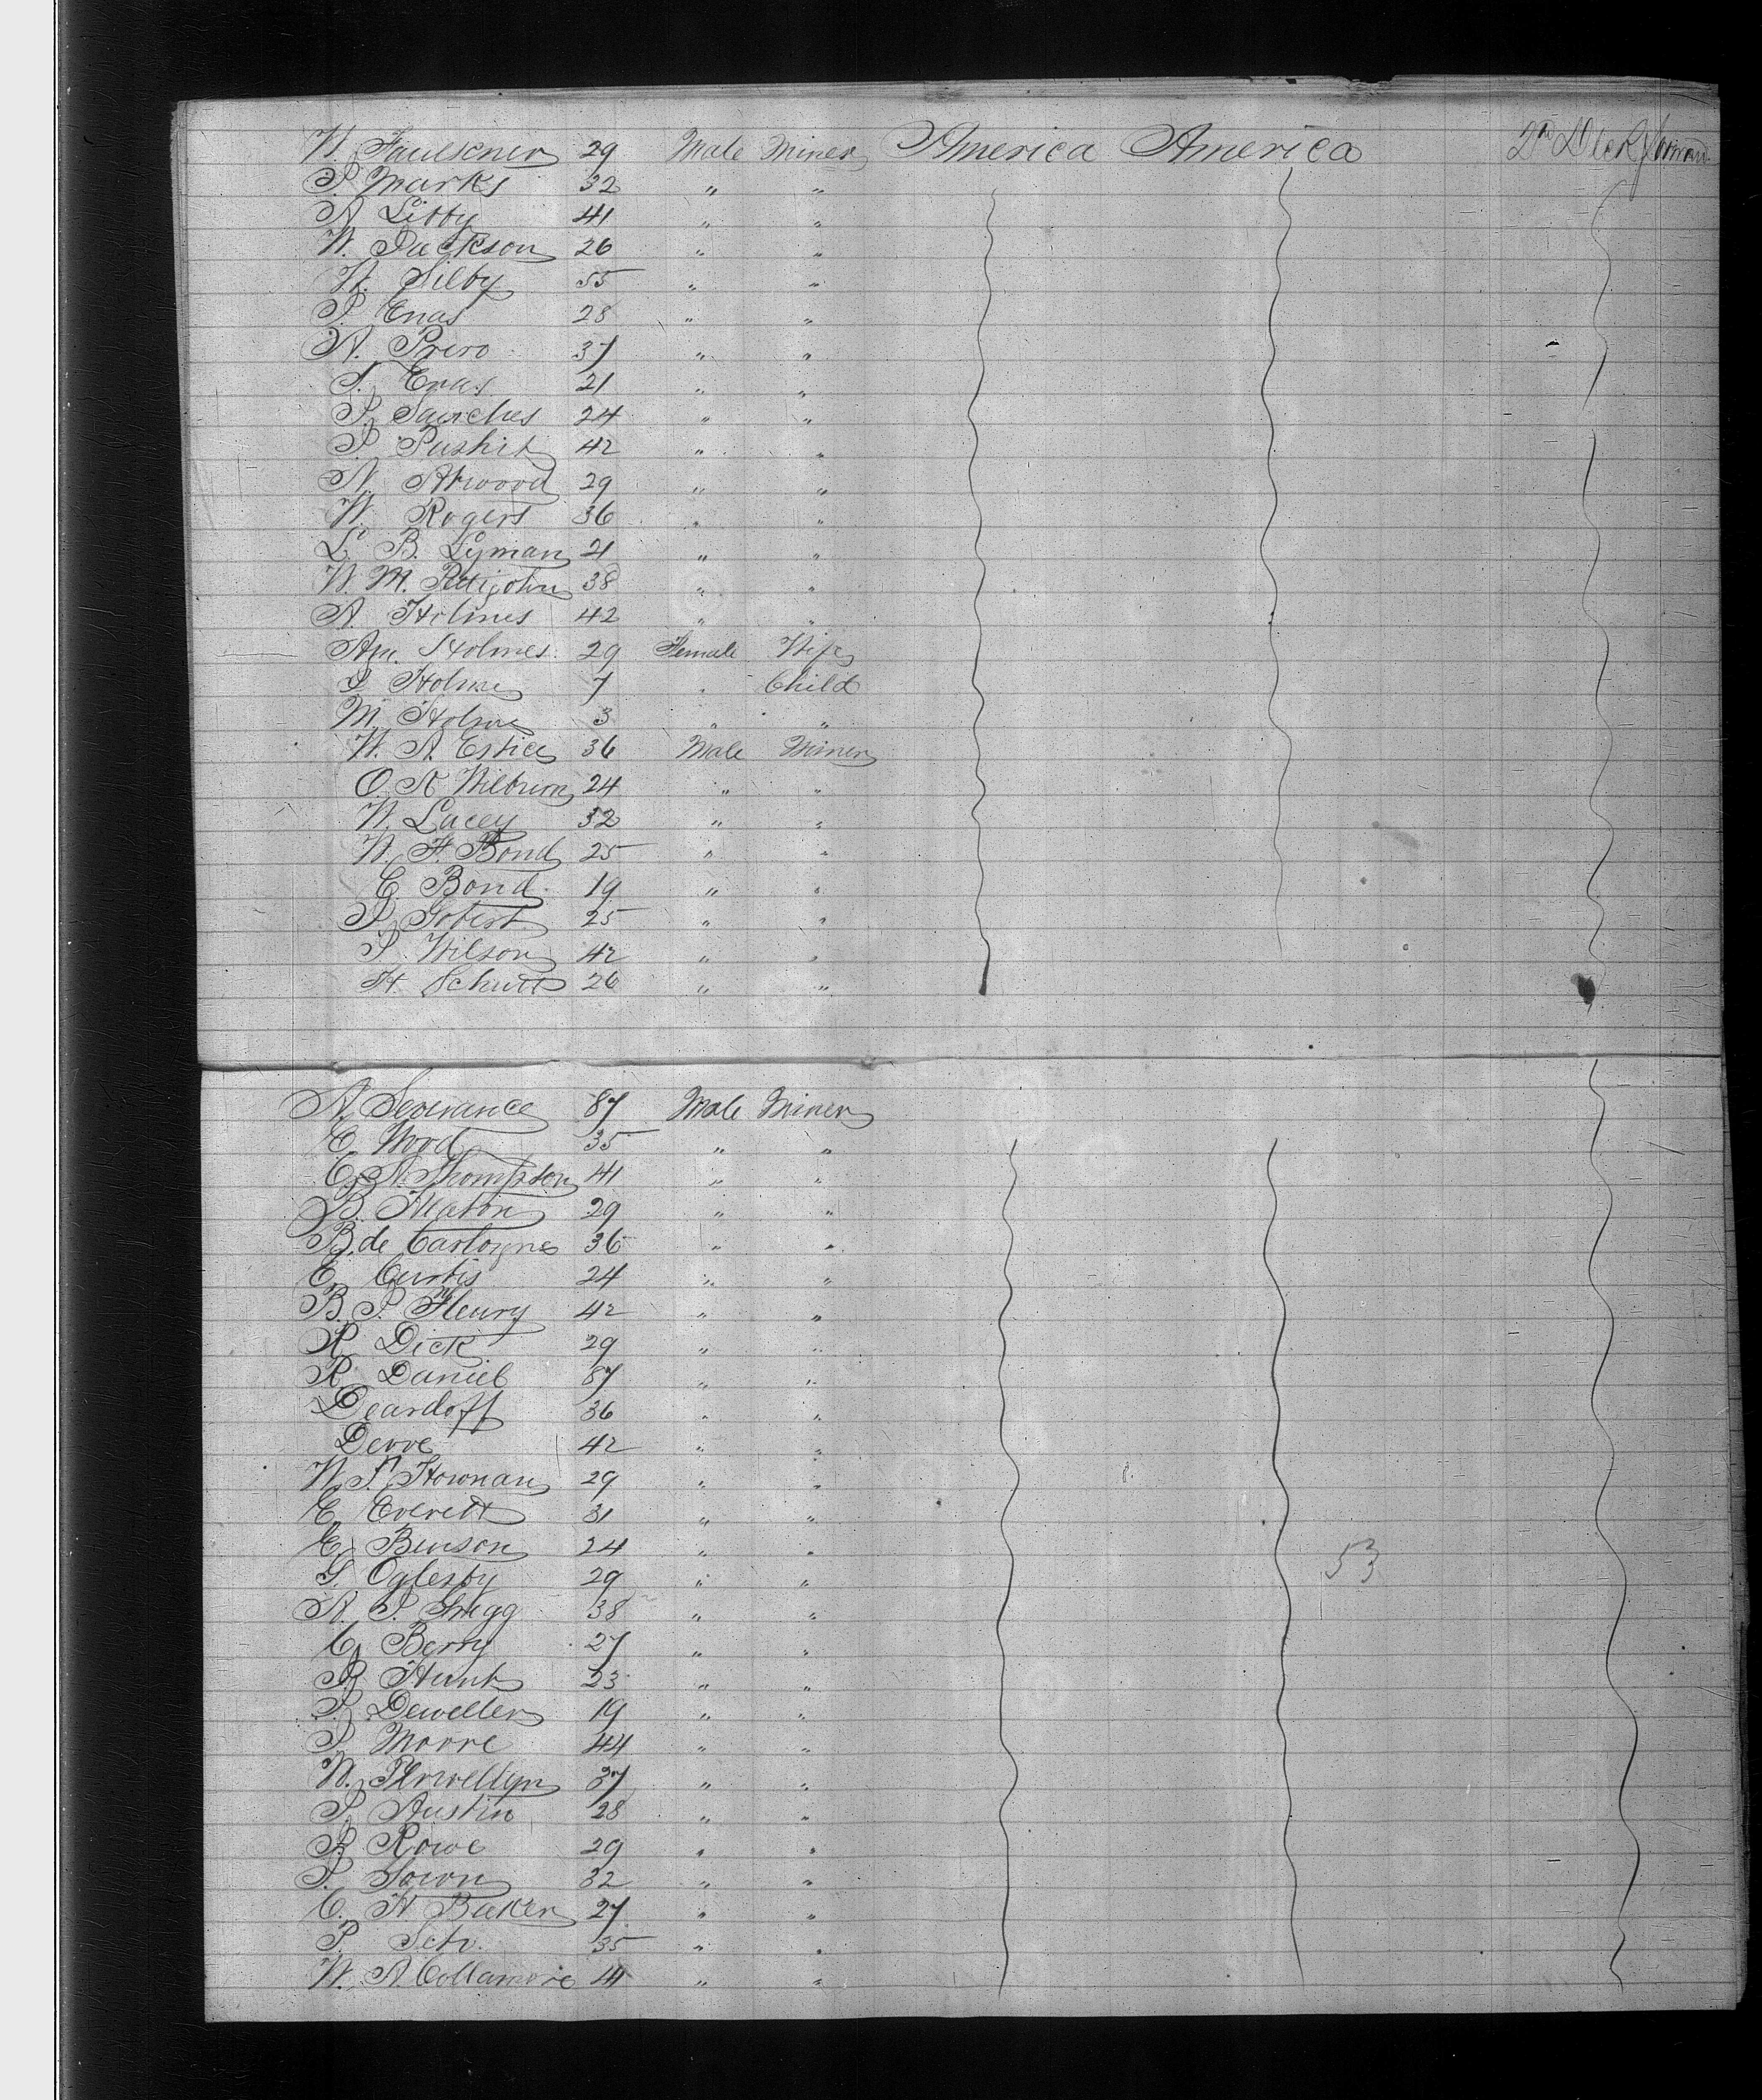 W. Faulskner 29 Male Miner America America 2nd Deck forward
P. Marks 32 " "
A. Libby 41 " "
W. Jackson 26 " "
W. Silby 55 " "
P. Enas 28 " "
A. Prero 37 " "
S. Enas 21 " "
P. Sanches 24 " "
P. Pushit 42 " "
N. Atwood 29 " "
W. Rogers 36 " "
L. B. Lyman 21 " "
W. M. Pettijohn 38 " "
A. Holmes 42 " "
Am. Holmes. 29 Female Wife
S Holmes 7 " Child
M. Holmes 3 " "
W. A. Estice 36 Male Miner
O. A Wilburn 24 " "
W. Lacey 32 " "
W. F. Bond 25 " "
C. Bond 19 " "
P. Gobert 25 " "
P. Wilson 42 " "
H. Schutt 26 " "
A. Severance 37 Male Miner
C. Wood 35 " "
C. A. Thompson 41 " "
B. Heaton 29 " "
B. de Castoyne 36 " "
C. Curtis 24 " "
B. P. Fleury 42 " "
R. Dick 29 " "
R. Daniel 37 " "
Deardoff 36 " "
Derve 42 " "
W. S. Howman 29 " "
E. Everett 31 " "
E. Benson 24 " "
G. Oglesby 29 " " 53
A. P. Gregg 38 " "
C. Berry 27 " "
B. Hunt 23 " "
P. Deweller 19 " "
P. Moore 44 " "
W. Plewellyn 37 " "
P. Austin 28 " "
B. Rowe 29 " "
P. Town 32 " "
C. H Baker 27 " "
P. Seti. 35 " "
W. A. Collamore 41 " "